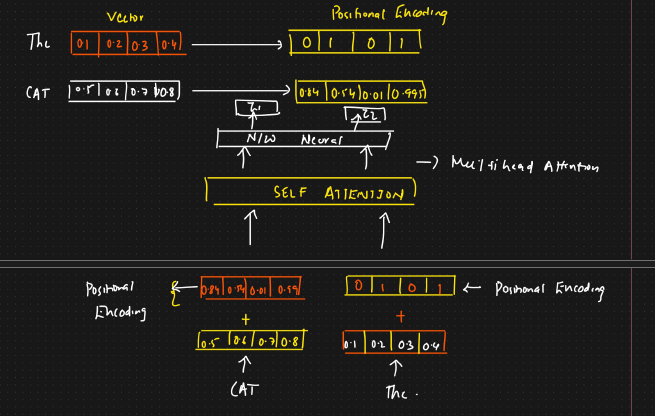 Vector Positional Encoding
The 0.1 0.2 0.3 0.4 0 1 0 1
CAT 0.5 0.6 0.7 0.8 0.84 0.54 0.01 0.995
Z1 Z2
N/W Neural
Multihead Attention
SELF ATTENTION
Positional Encoding 0.84 0.54 0.01 0.99 0 1 0 1 Positional Encoding
+ +
0.5 0.6 0.7 0.8 0.1 0.2 0.3 0.4
CAT The.